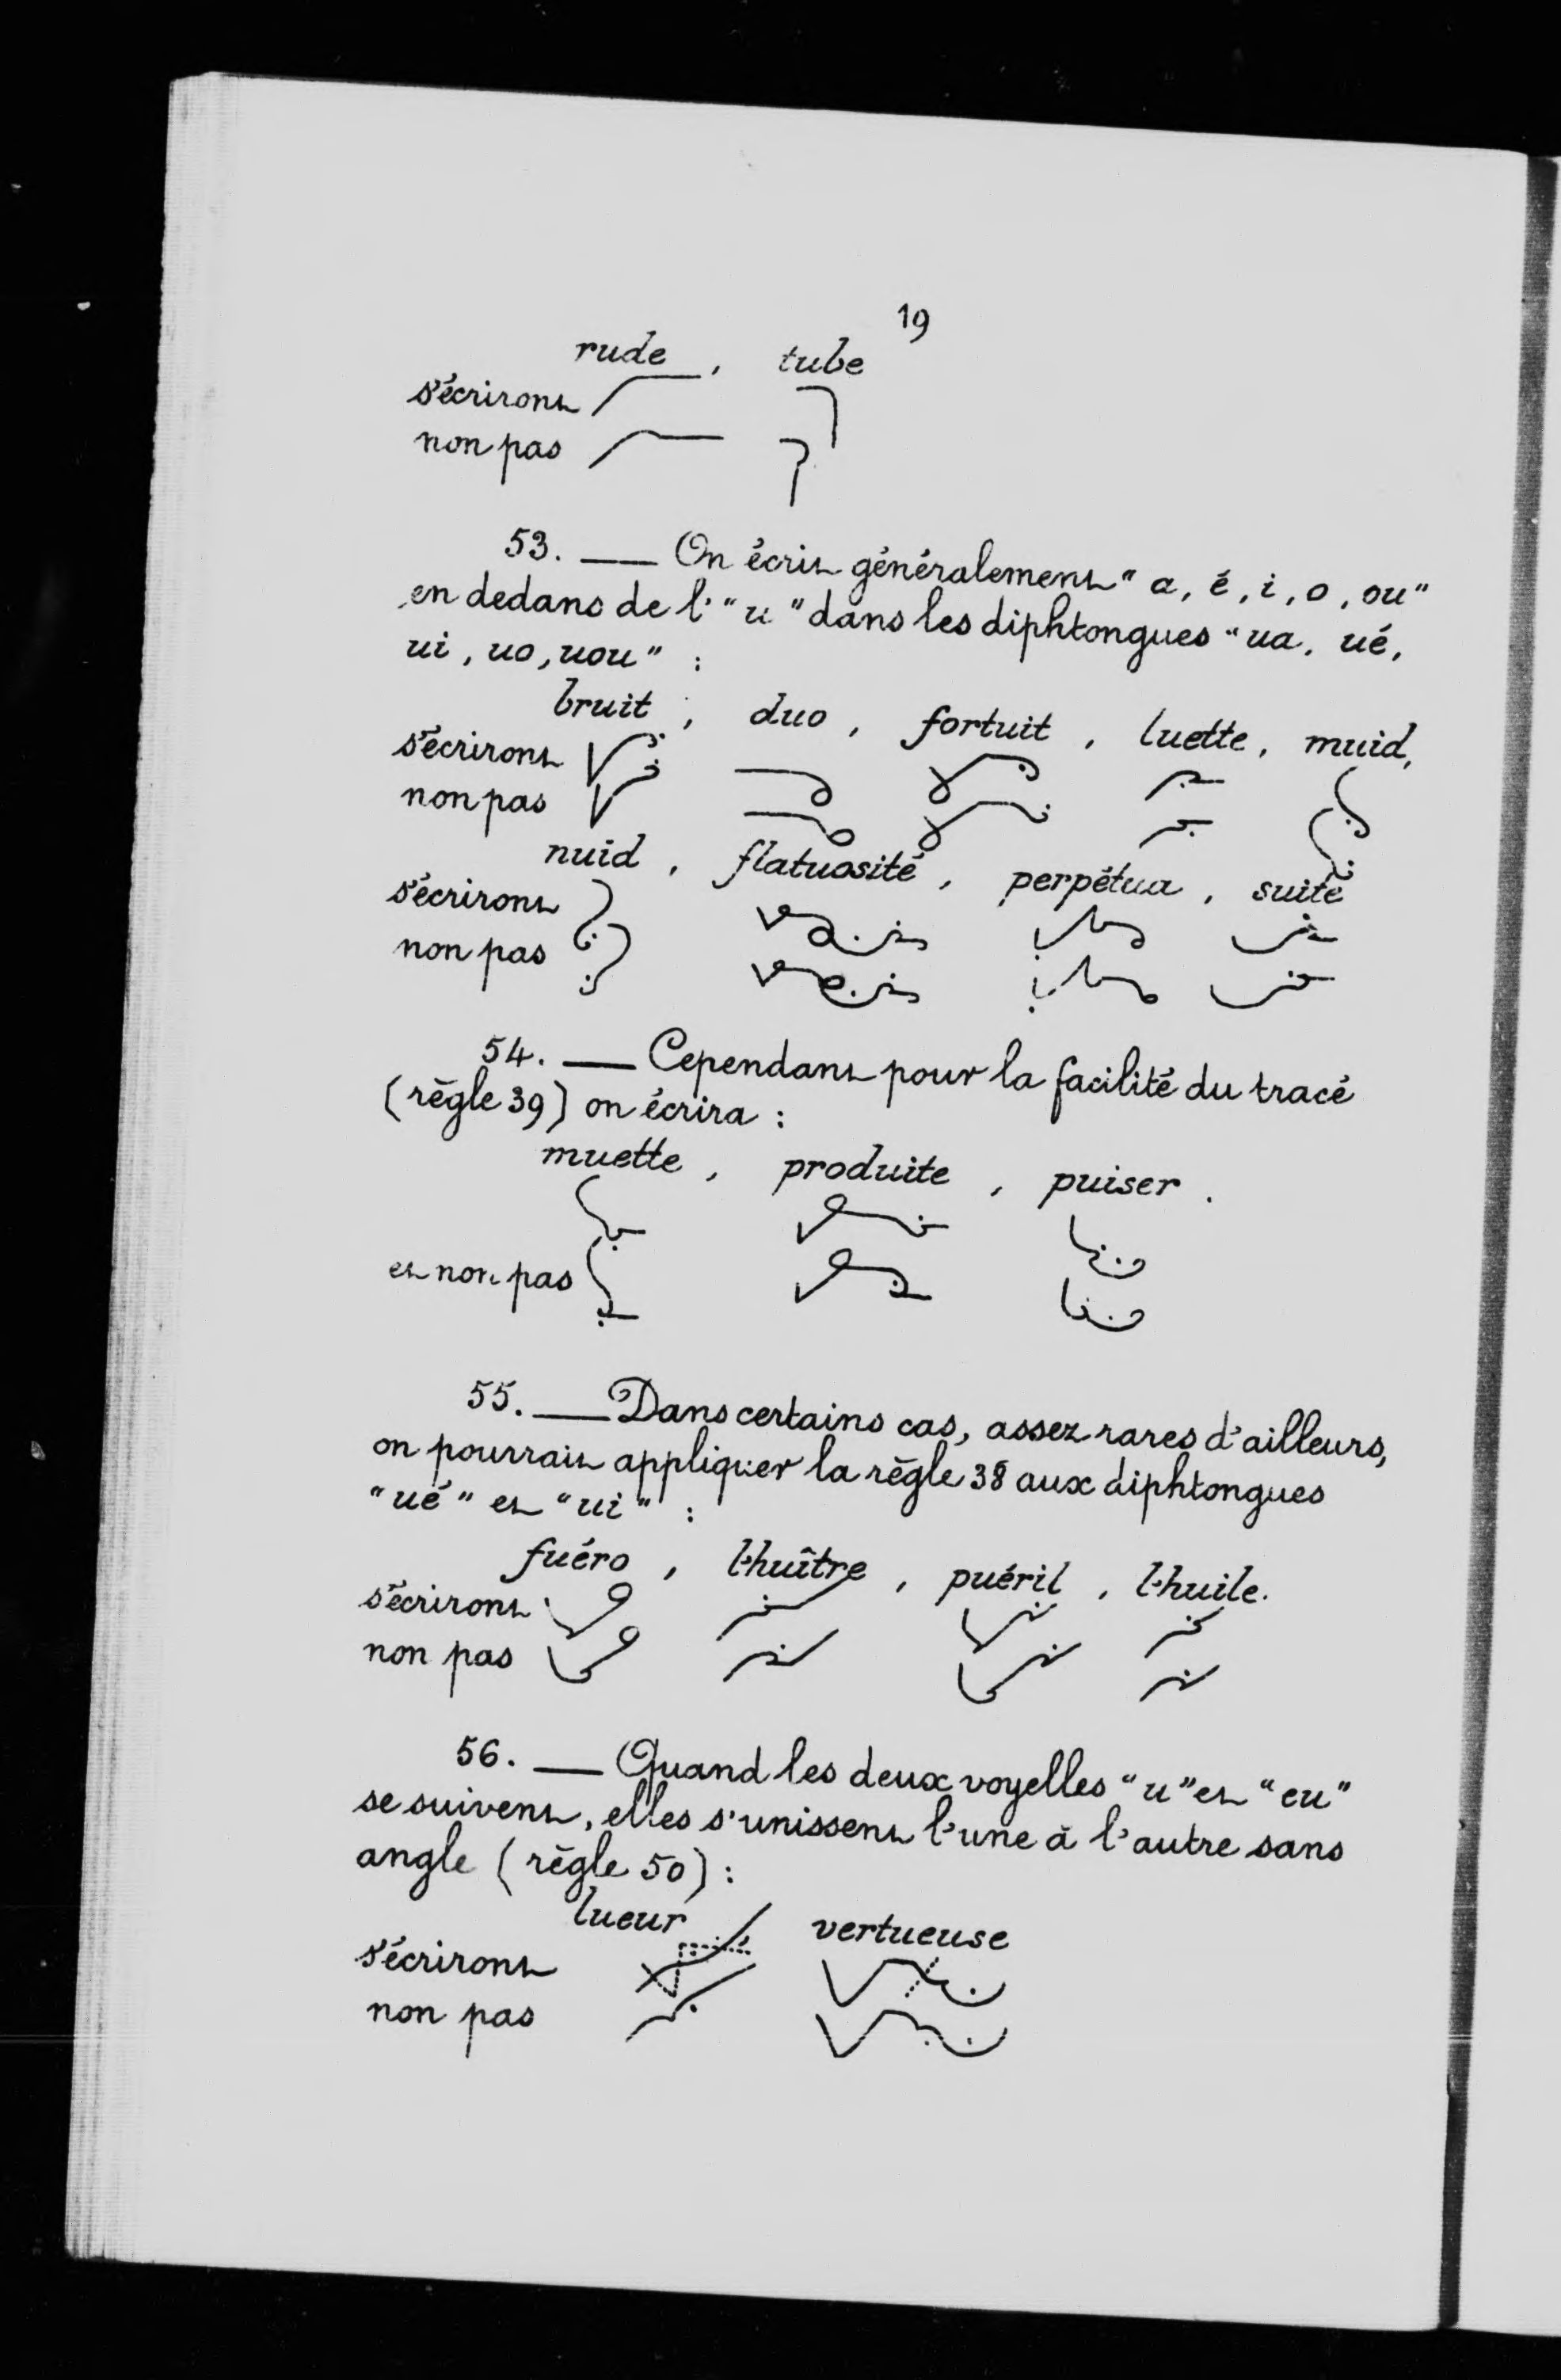 19
rude, tube
s'écriront
non pas
53. — On écrit généralement "a, é, i, o, ou"
en dedans de l'"u" dans les diphtongues "ua, ué,
ui, uo, uou" :
bruit, duo, fortuit, luette, muid,
s'écriront
non pas
nuid, flatuosité, perpétua, suite
s'écriront
non pas
54. — Cependant pour la facilité du tracé
(règle 39) on écrira :
muette, produite, puiser.
et non pas
55. — Dans certains cas, assez rares d'ailleurs,
on pourrait appliquer la règle 38 aux diphtongues
"ué" et "ui" :
fuéro, l'huître, puéril, l'huile.
s'écriront
non pas
56. — Quand les deux voyelles "u" et "eu"
se suivent, elles s'unissent l'une à l'autre sans
angle (règle 50) :
lueur vertueuse
s'écriront
non pas